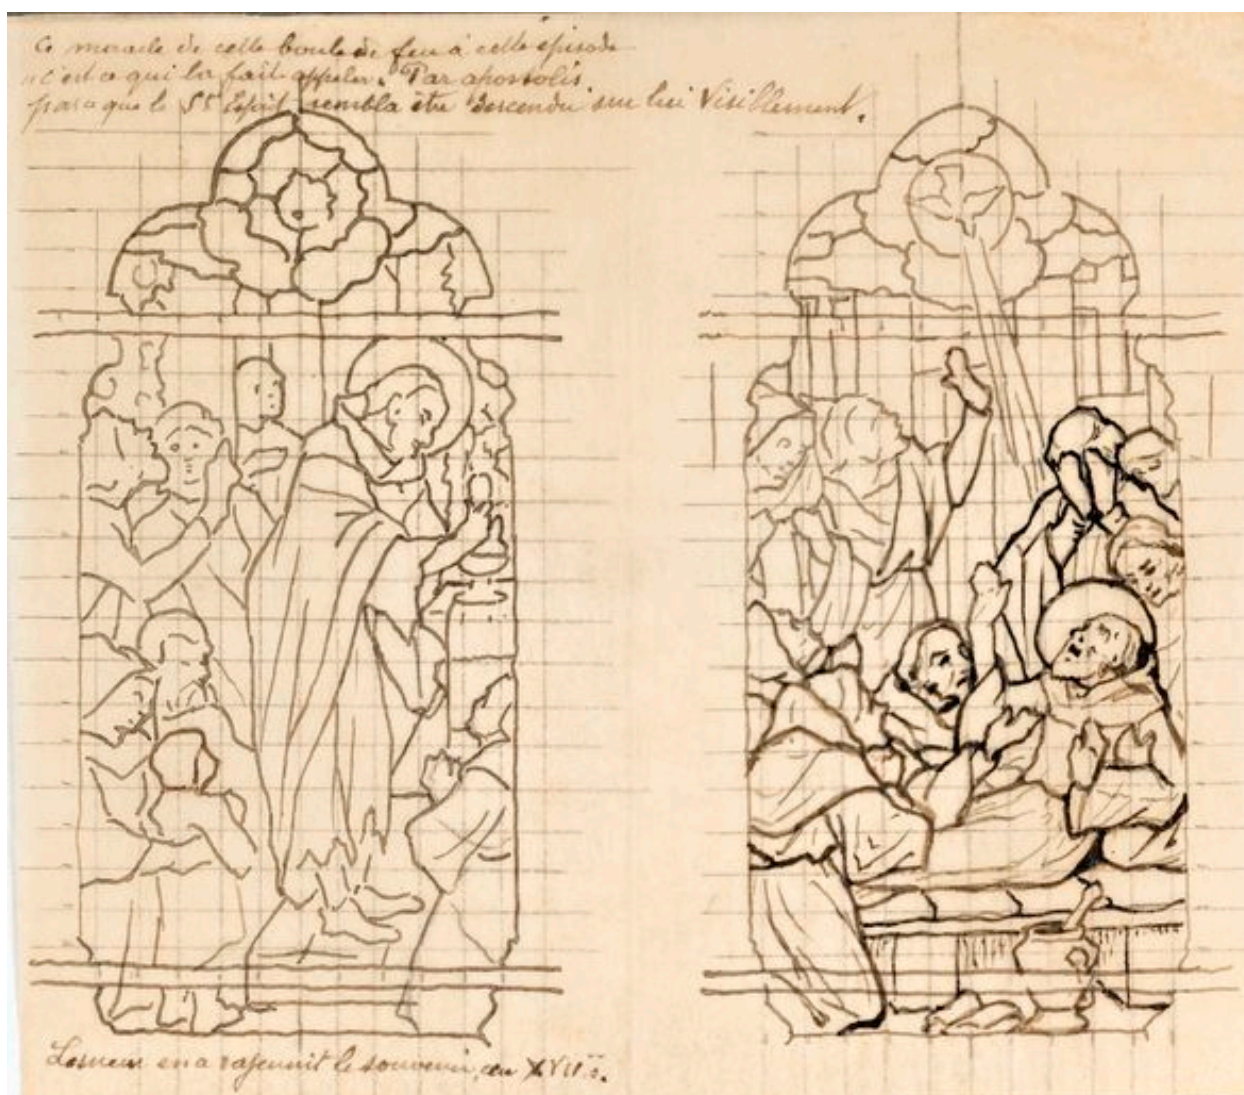 Ce miracle de cette boule de feu à cette épisode
c'est ce qui l'a fait appeler. "Par apostolis.
parce que le St Esprit sembla être descendu sur lui visiblement.
Lesueur en a rajeunit le souvenir, au XVIIe s.